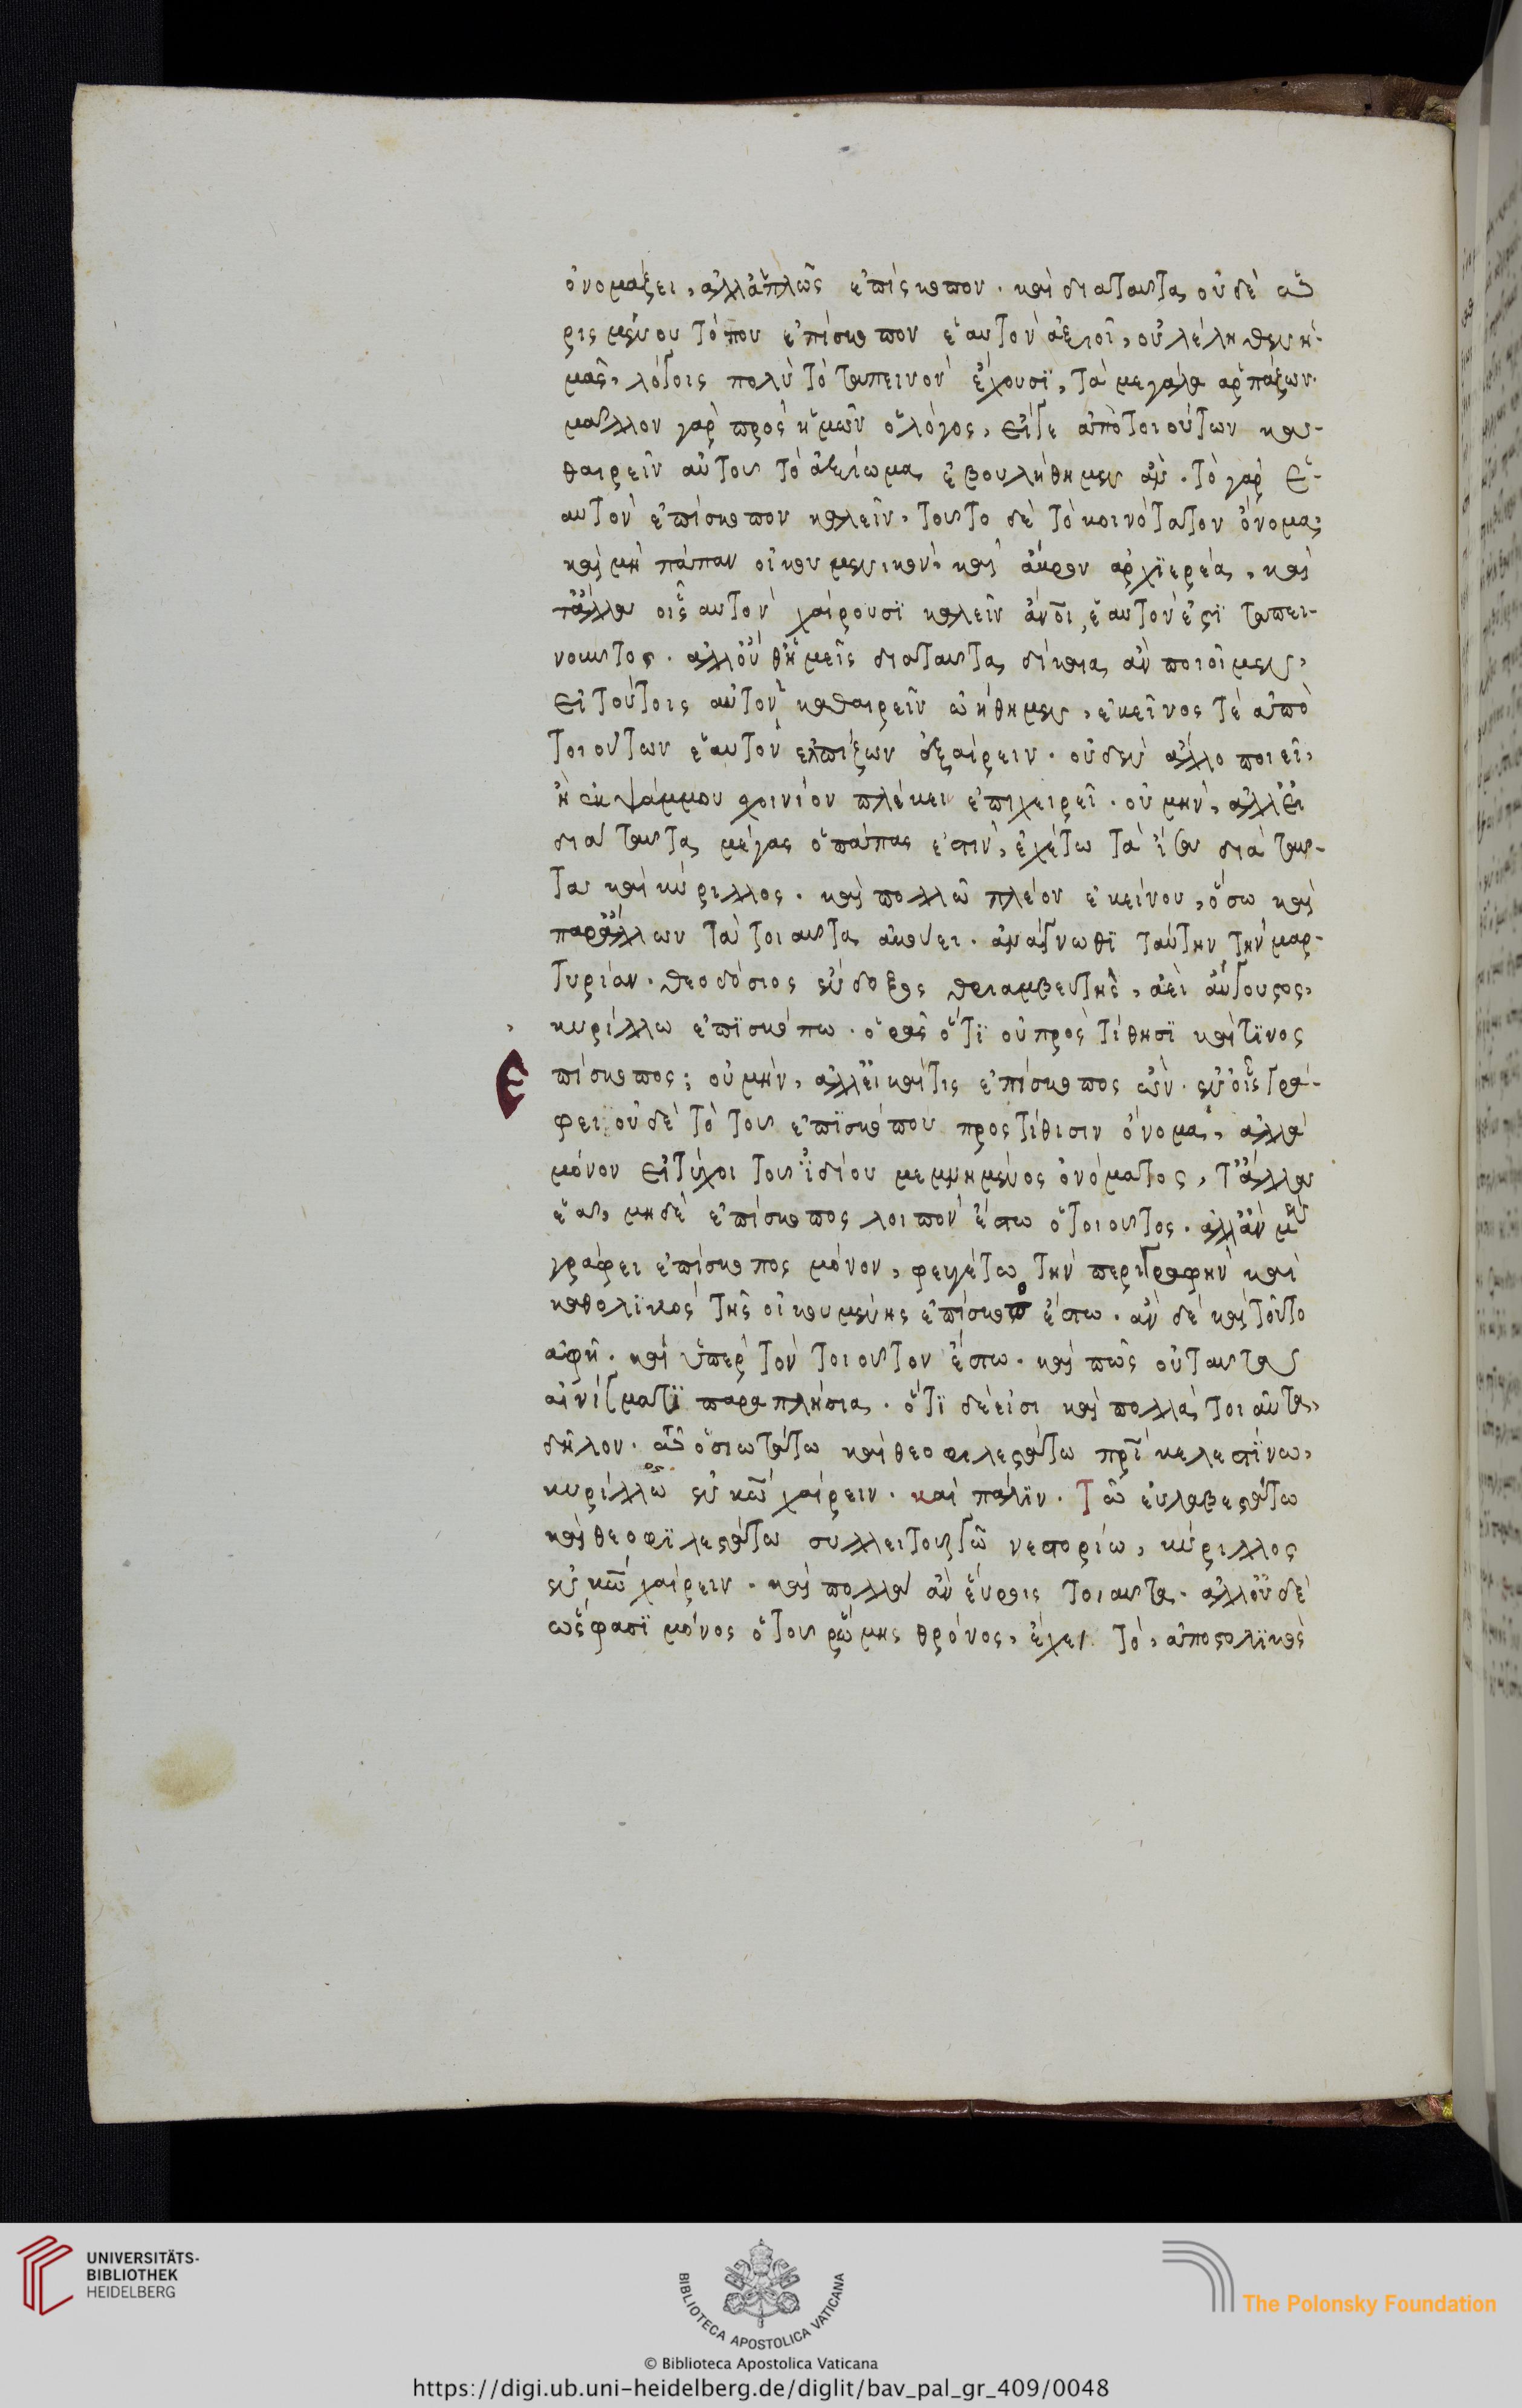 ὀνομάζει, ἀλλ' ἁπλῶς ἐπίσκοπον. καὶ διὰ ταῦτα οὐδὲ ὡ-
ρισμένου τόπου ἐπίσκοπον ἑαυτὸν ἀξιοῖ, οὐ λέληθεν ἡ-
μᾶς, λόγοις πολὺ τὸ ταπεινὸν ἔχουσι, τὰ μεγάλα ἁρπάζων.
μᾶλλον γὰρ πρὸς ἡμῶν ὁ λόγος, εἴγε ἀπὸ τοιούτων κα-
θαιρεῖν αὐτοῦ τὸ ἀξίωμα ἐβουλήθημεν ἄν. τὸ γὰρ ἑ-
αυτὸν ἐπίσκοπον καλεῖν, τοῦτο δὲ τὸ κοινότατον ὄνομα,
καὶ μὴ πάπαν οἰκουμενικὸν, καὶ ἄκρον ἀρχιερέα, καὶ
τἄλλα οἷς αὐτὸν χαίρουσι καλεῖν ἄνοι, ἑαυτόν ἐστι ταπει-
νοῦντος. ἀλλ' οὔθ' ἡμεῖς διὰ ταῦτα δίκαια ἂν ποιοῖμεν,
εἰ τούτοις αὐτὸν καθαιρεῖν ᾠήθημεν, ἐκεῖνος τὲ ἀπὸ
τοιούτων ἑαυτὸν ἐλπίζων ἐξαίρειν. οὐδὲν ἄλλο ποιεῖ,
ἢ ἐκ ψάμμου σχοινίον πλέκειν ἐπιχειρεῖ. οὐ μὴν, ἀλλ' εἰ
διὰ ταῦτα μέγας ὁ πάπας ἐστὶν, ἐχέτω τὰ ἴσα διὰ ταῦ-
τα καὶ κύριλλος. καὶ πολλῷ πλέον ἐκείνου, ὅσω καὶ
παρ' ἄλλων τὰ τοιαῦτα ἀκούει. ἀνάγνωθι ταύτην τὴν μαρ-
τυρίαν. θεοδόσιος ἔνδοξος θριαμβευτὴς, ἀεὶ αὔγουστος,
κυρίλλω ἐπισκόπω. ὁρᾶς ὅτι οὐ προστίθησι καὶ τίνος
ἐπίσκοπος; οὐ μὴν, ἀλλ' εἰ καί τις ἐπίσκοπος ὢν. ἐν οἷς γρά-
φει οὐδὲ τὸ τοῦ ἐπισκόπου προστίθισιν ὄνομα, ἀλλὰ
μόνον εἰ τύχοι τοῦ ἰδίου μεμνημένος ὀνόματος, τἄλλα
ἐᾶ, μηδὲ ἐπίσκοπος λοιπὸν ἔστω ὁ τοιοῦτος. ἀλλ' ἂν μὲν
γράφει ἐπίσκοπος μόνον, φευγέτω τὴν περιγραφὴν καὶ
καθολικὸς τῆς οἰκουμένης ἐπίσκοπος ἔστω. ἂν δὲ καὶ τοῦτο
ἀφῇ. καὶ ὑπὲρ τὸν τοιοῦτον ἔστω. καὶ πῶς οὐ ταῦτα
αἰνίγματι παραπλήσια. ὅτι δὲ εἰσι καὶ πολλὰ τοιαῦτα,
δῆλον. τῷ ὁσιωτάτω καὶ θεοφιλεστάτω πρὶ κελεστίνω,
κυρίλλος ἐν κω χαίρειν. καὶ πάλιν. Τῷ εὐλαβεστάτω
καὶ θεοφιλεστάτω συλλειτουργῷ νεστορίω, κύριλλος
ἐν κω χαίρειν. καὶ πολλὰ ἂν εὕροις τοιαῦτα. ἀλλ' οὐδὲ
ὥς φασι μόνος ὁ τοῦ ῥώμης θρόνος, ἔχει τὸ, ἀποστολικὸς
UNIVERSITÄTS-
BIBLIOTHEK
HEIDELBERG
BIBLIOTECA APOSTOLICA VATICANA
The Polonsky Foundation
© Biblioteca Apostolica Vaticana
https://digi.ub.uni-heidelberg.de/diglit/bav_pal_gr_409/0048